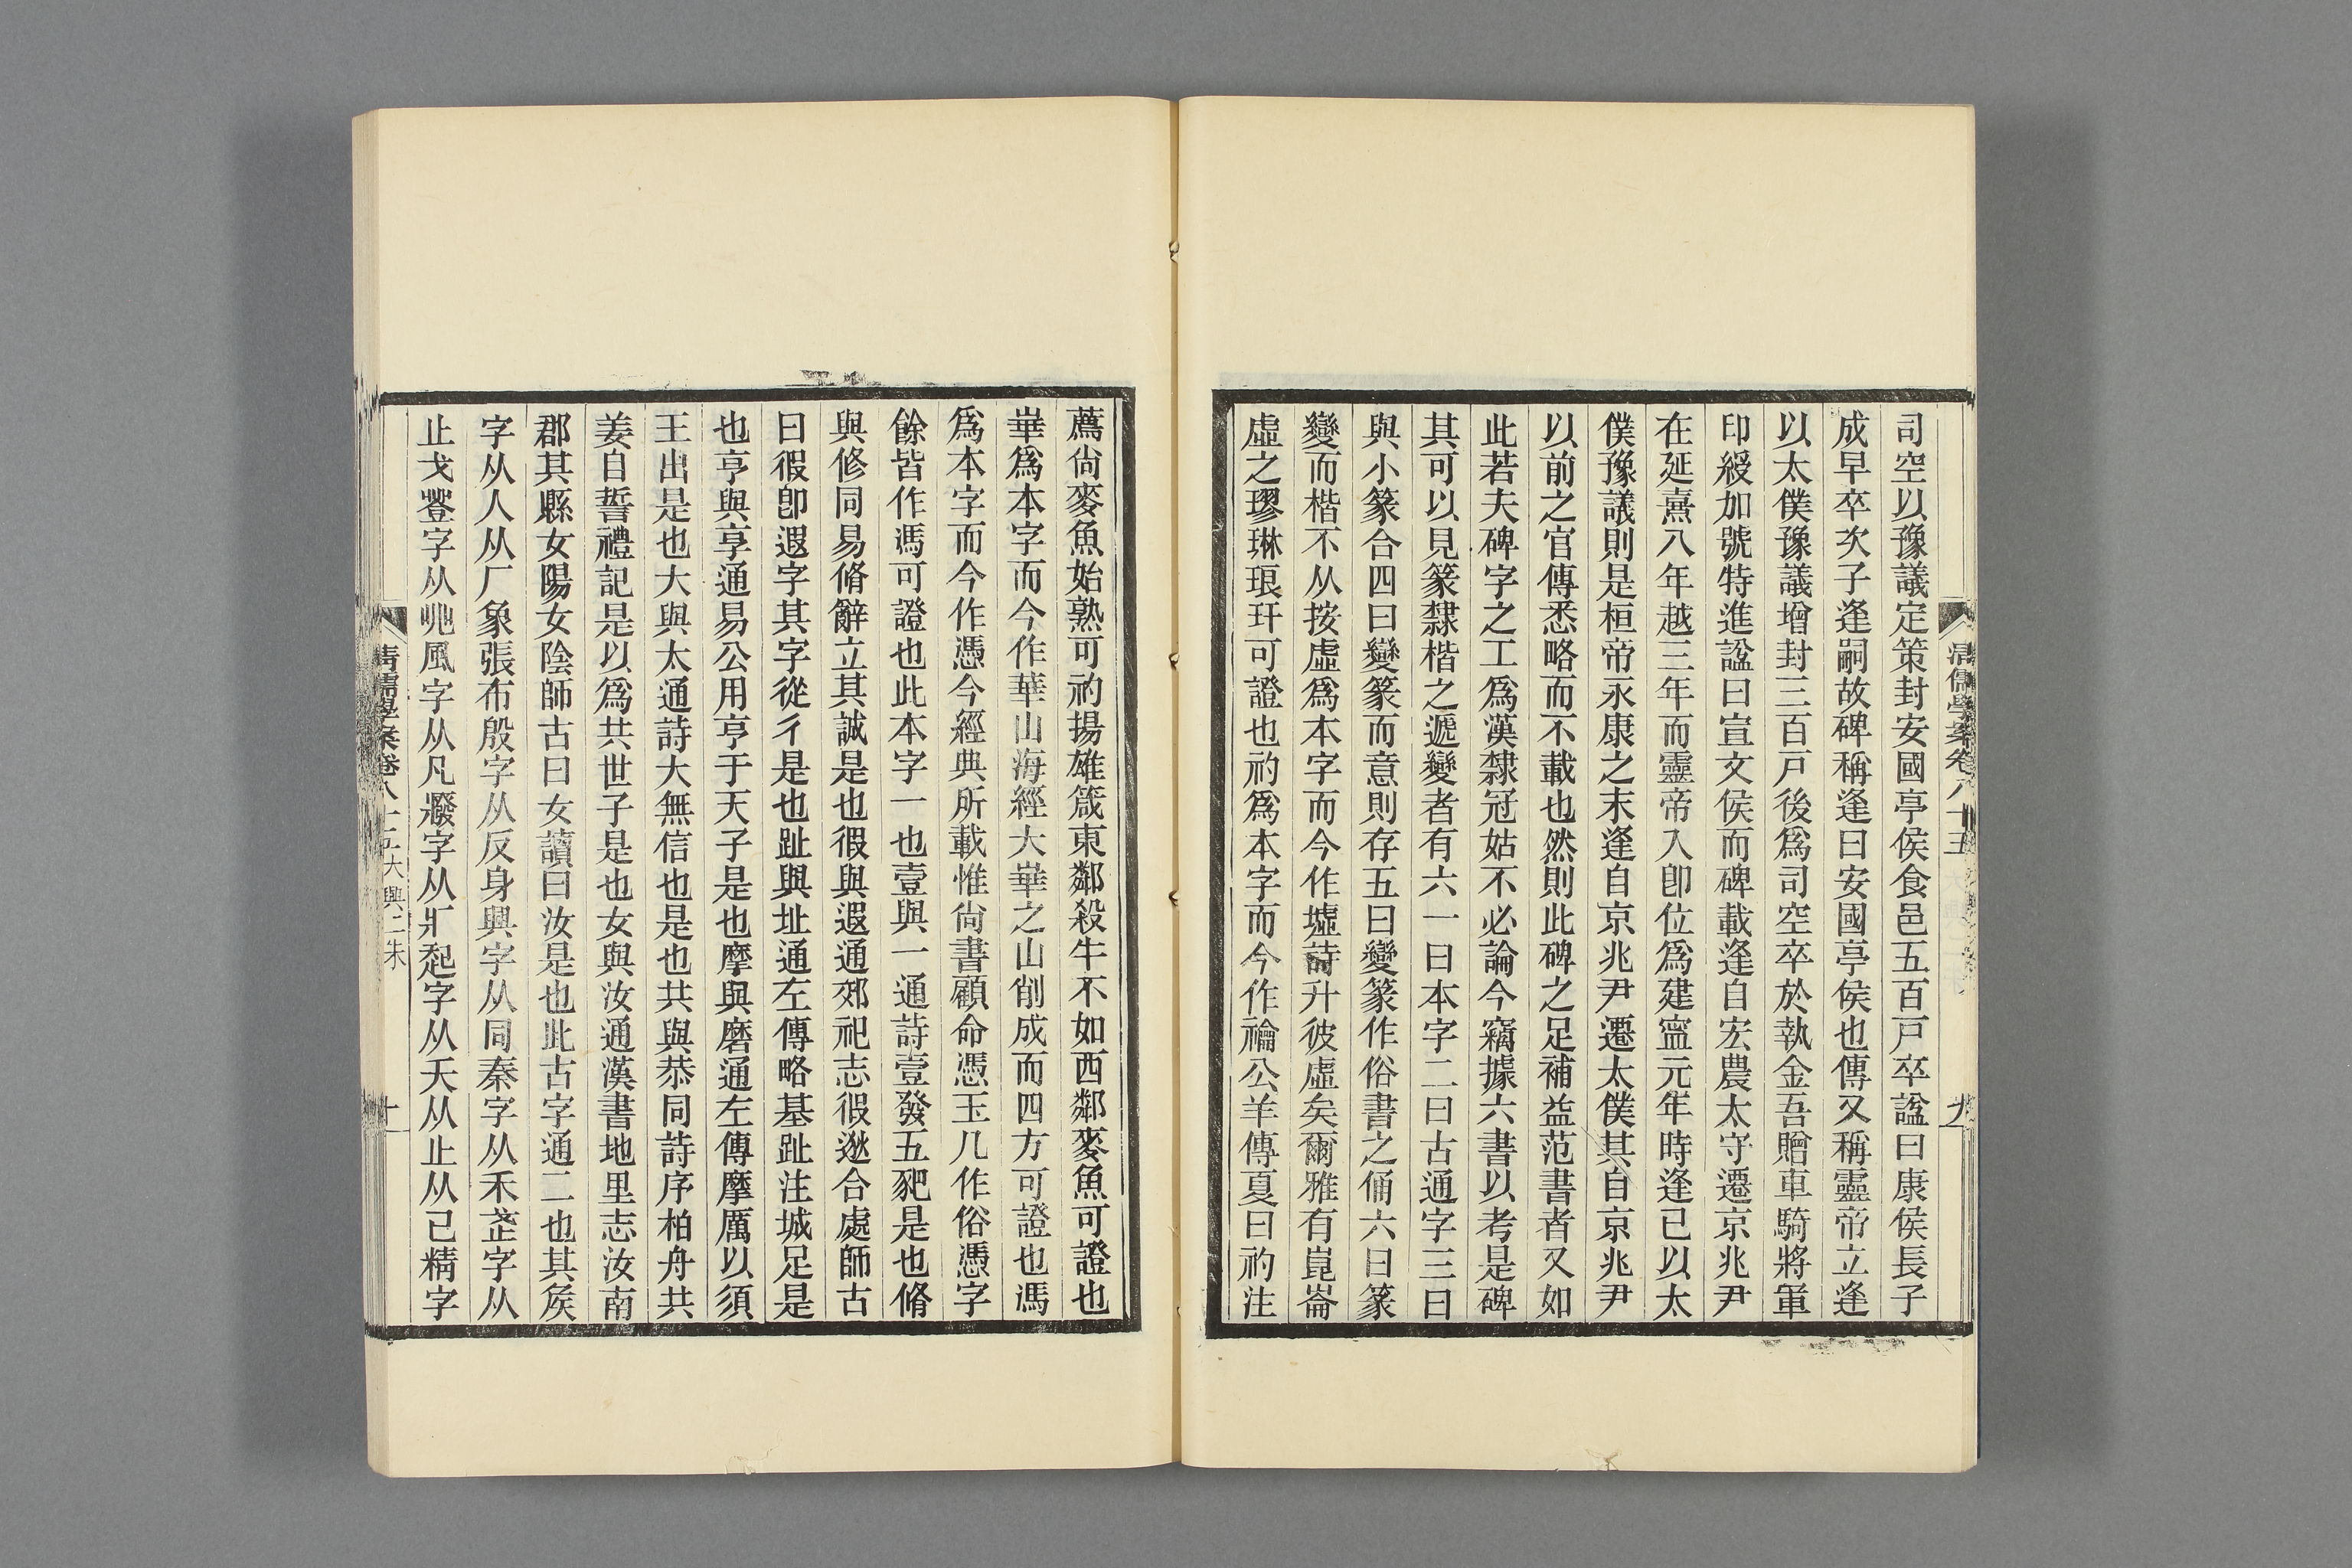 清儒學案卷八十五
九
司空以豫議定策封安國亭侯食邑五百戸卒諡曰康侯長子
成早卒次子逢嗣故碑稱逢曰安國亭侯也傳又稱靈帝立逢
以太僕豫議增封三百戸後爲司空卒於執金吾贈車騎將軍
印綬加號特進諡曰宣文侯而碑載逢自宏農太守遷京兆尹
在延熹八年越三年而靈帝入卽位爲建寍元年時逢已以太
僕豫議則是桓帝永康之末逢自京兆尹遷太僕其自京兆尹
以前之官傳悉略而不載也然則此碑之足補益范書者又如
此若夫碑字之工爲漢隸冠姑不必論今竊據六書以考是碑
其可以見篆隸楷之遞變者有六一曰本字二曰古通字三曰
與小篆合四曰變篆而意則存五曰變篆作俗書之俑六曰篆
變而楷不从按虛爲本字而今作墟詩升彼虛矣爾雅有崑崙
虛之璆琳琅玕可證也礿爲本字而今作禴公羊傳夏曰礿注
薦尙麥魚始熟可礿揚雄箴東鄰殺牛不如西鄰麥魚可證也
崋爲本字而今作華山海經大崋之山削成而四方可證也馮
爲本字而今作憑今經典所載惟尙書顧命憑玉几作俗憑字
餘皆作馮可證也此本字一也壹與一通詩壹發五豝是也脩
與修同易脩辭立其誠是也徦與遐通郊祀志徦遬合處師古
曰徦卽遐字其字從彳是也趾與址通左傳略基趾注城足是
也亨與享通易公用亨于天子是也摩與磨通左傳摩厲以須
王出是也大與太通詩大無信也是也共與恭同詩序柏舟共
姜自誓禮記是以爲共世子是也女與汝通漢書地里志汝南
郡其縣女陽女陰師古曰女讀曰汝是也此古字通二也其矦
字从人从厂象張布殷字从反身興字从同秦字从禾䒶字从
止戈豋字从癶風字从凡癈字从疒起字从夭从止从己精字
清儒學案卷八十五大興二朱
十